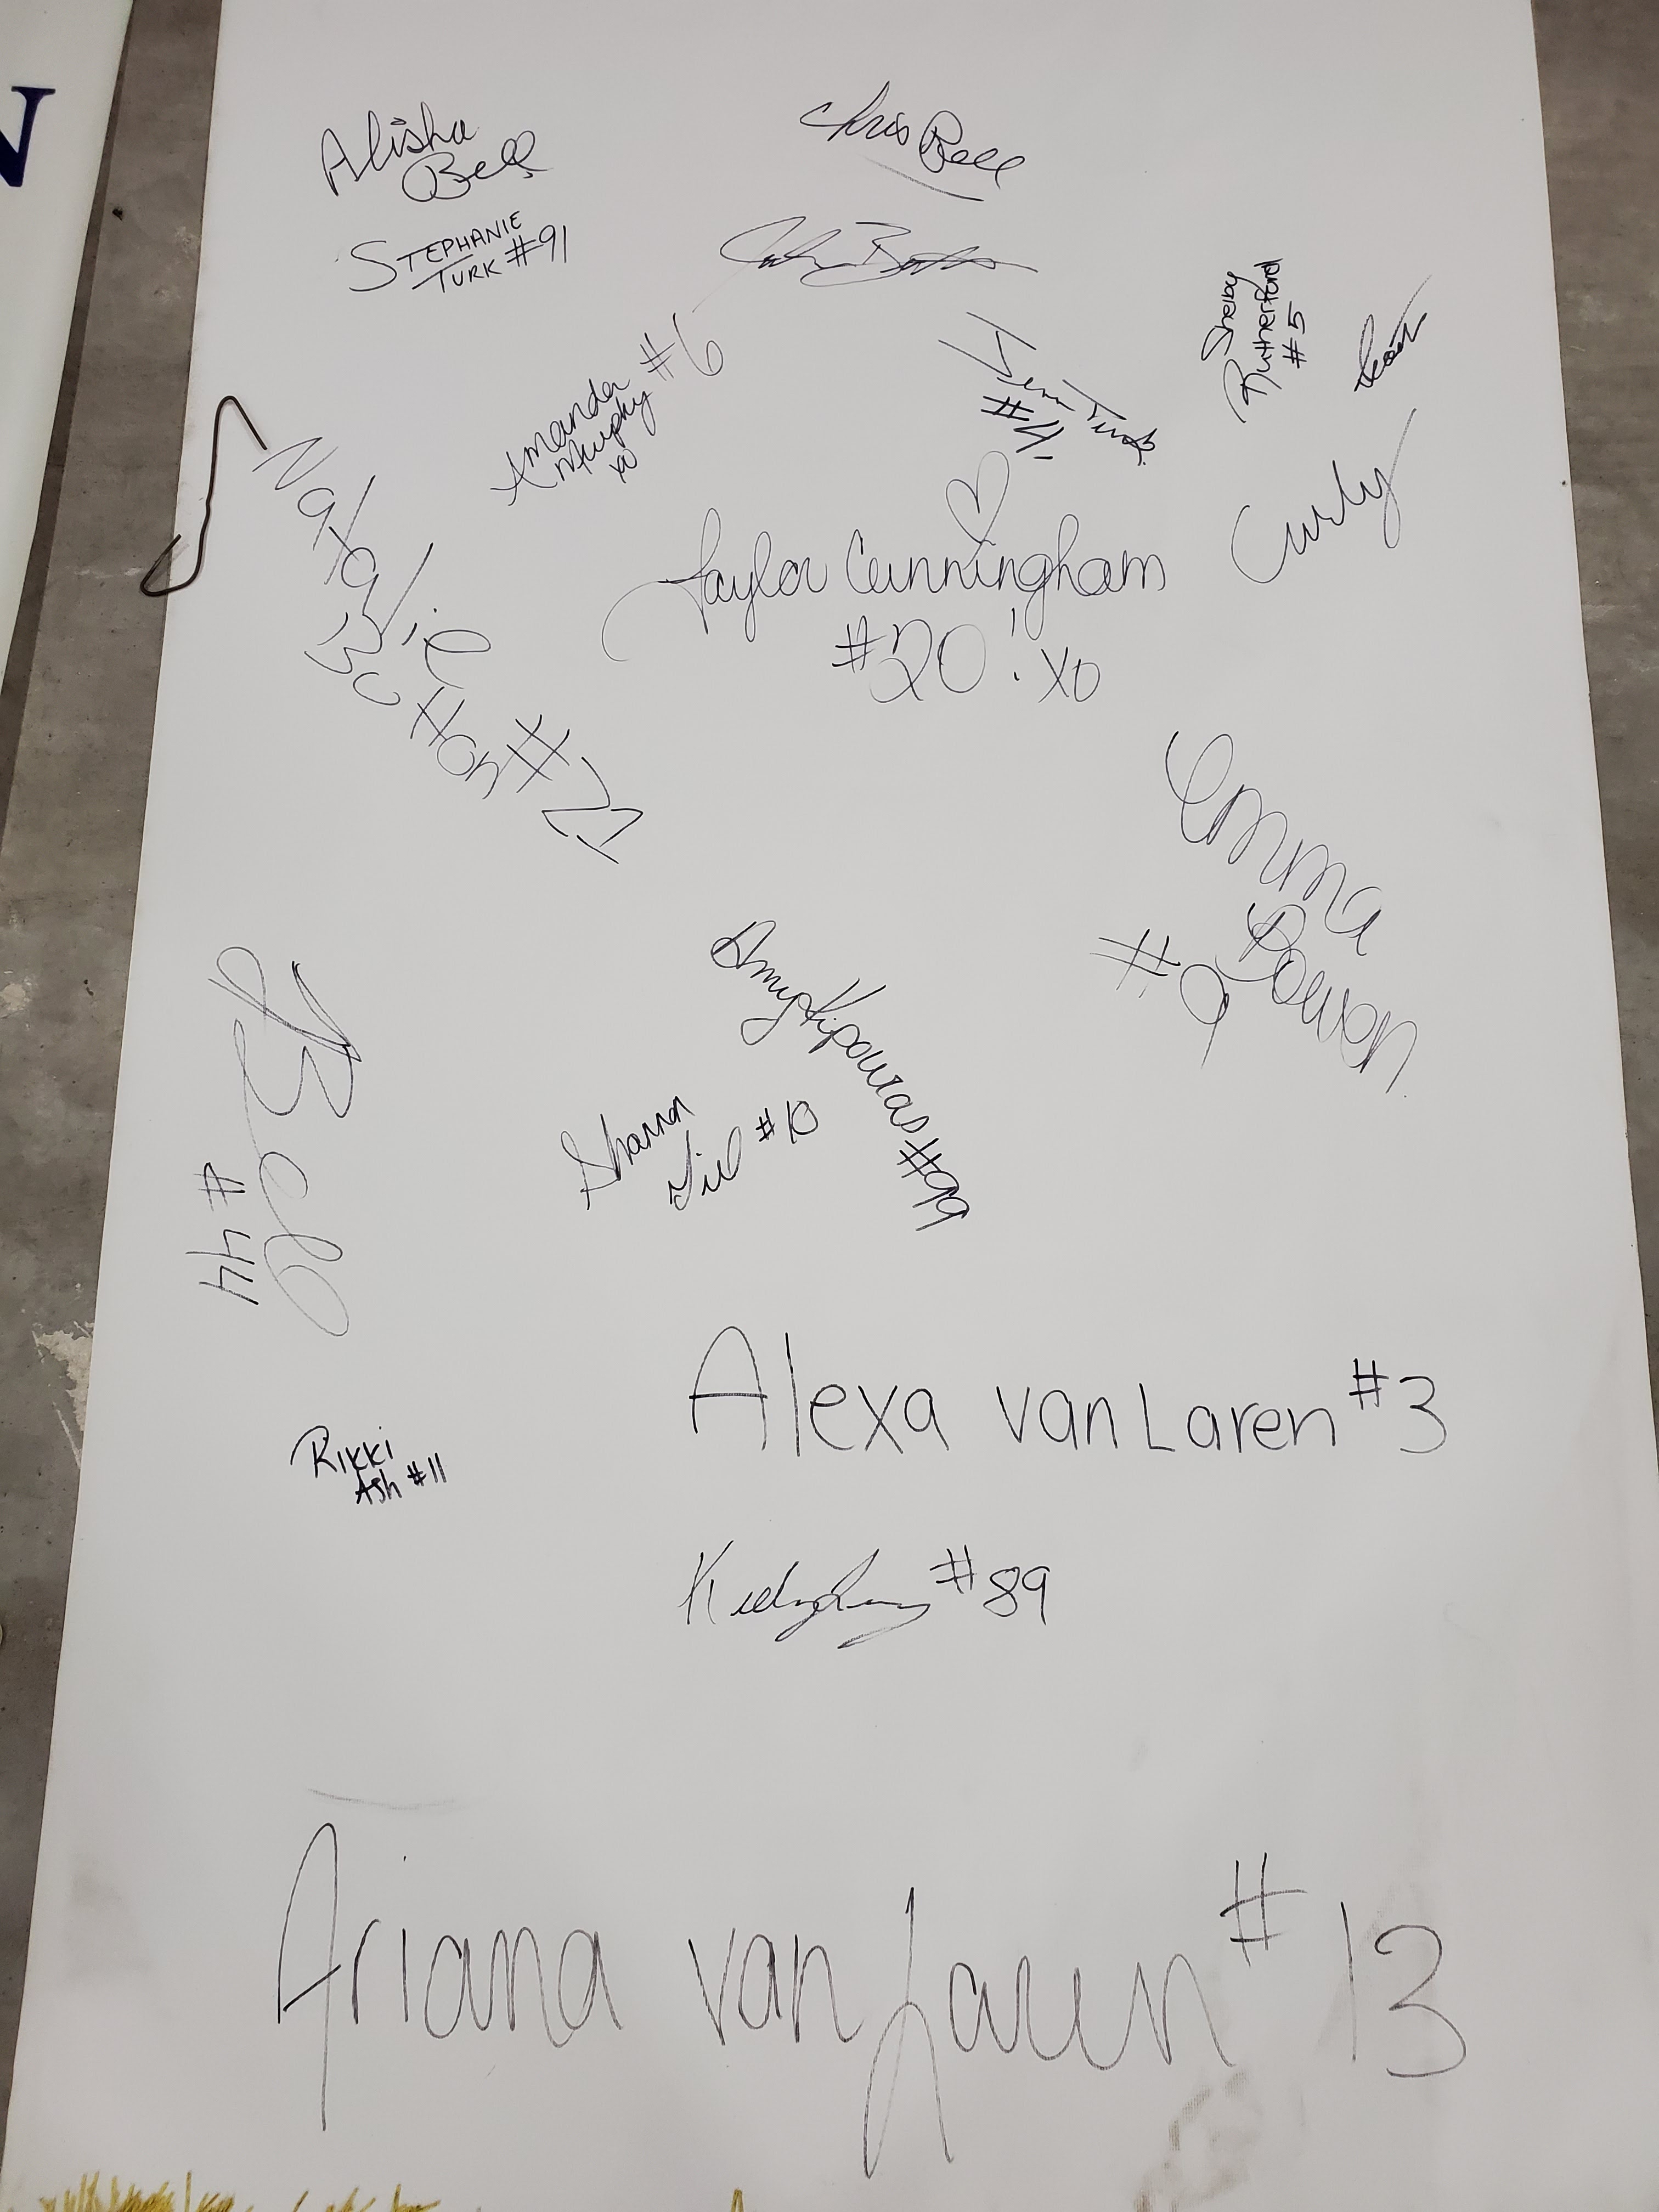 N
Alisha
Bell
Chris Bell
STEPHANIE
TURK #91
Shelby
Rutherford
#5
Amanda #6
Murphy
xo
Jenn Turk
Curly
Natalie
Bolton #21
Taylor Cunningham
#20! xo
Emma
Bowen
#9
Bell
#44
Amy Kipouras #99
Shannon
#10
Alexa van Laren #3
Rikki
Ash #11
#89
Ariana van Laren #13